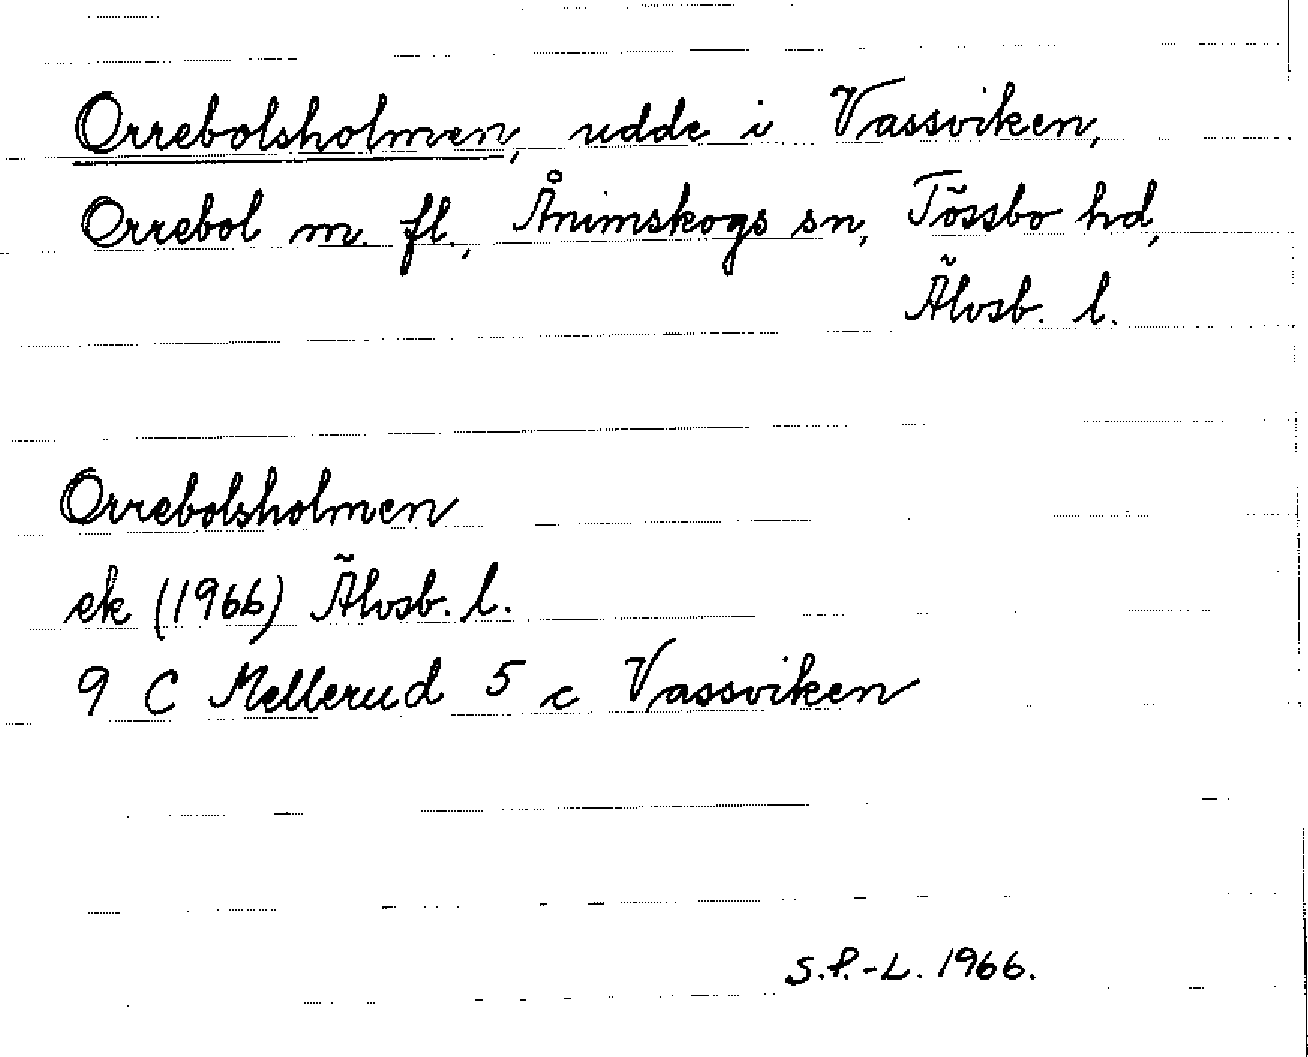 Orrebolsholmen, udde i Vassviken,
Orrebol m. fl., Ånimskogs sn, Tössbo hd,
Älvsb. l.
Orrebolsholmen
ek (1966) Älvsb. l.
9 C Mellerud 5 c Vassviken
S.P.-L. 1966.